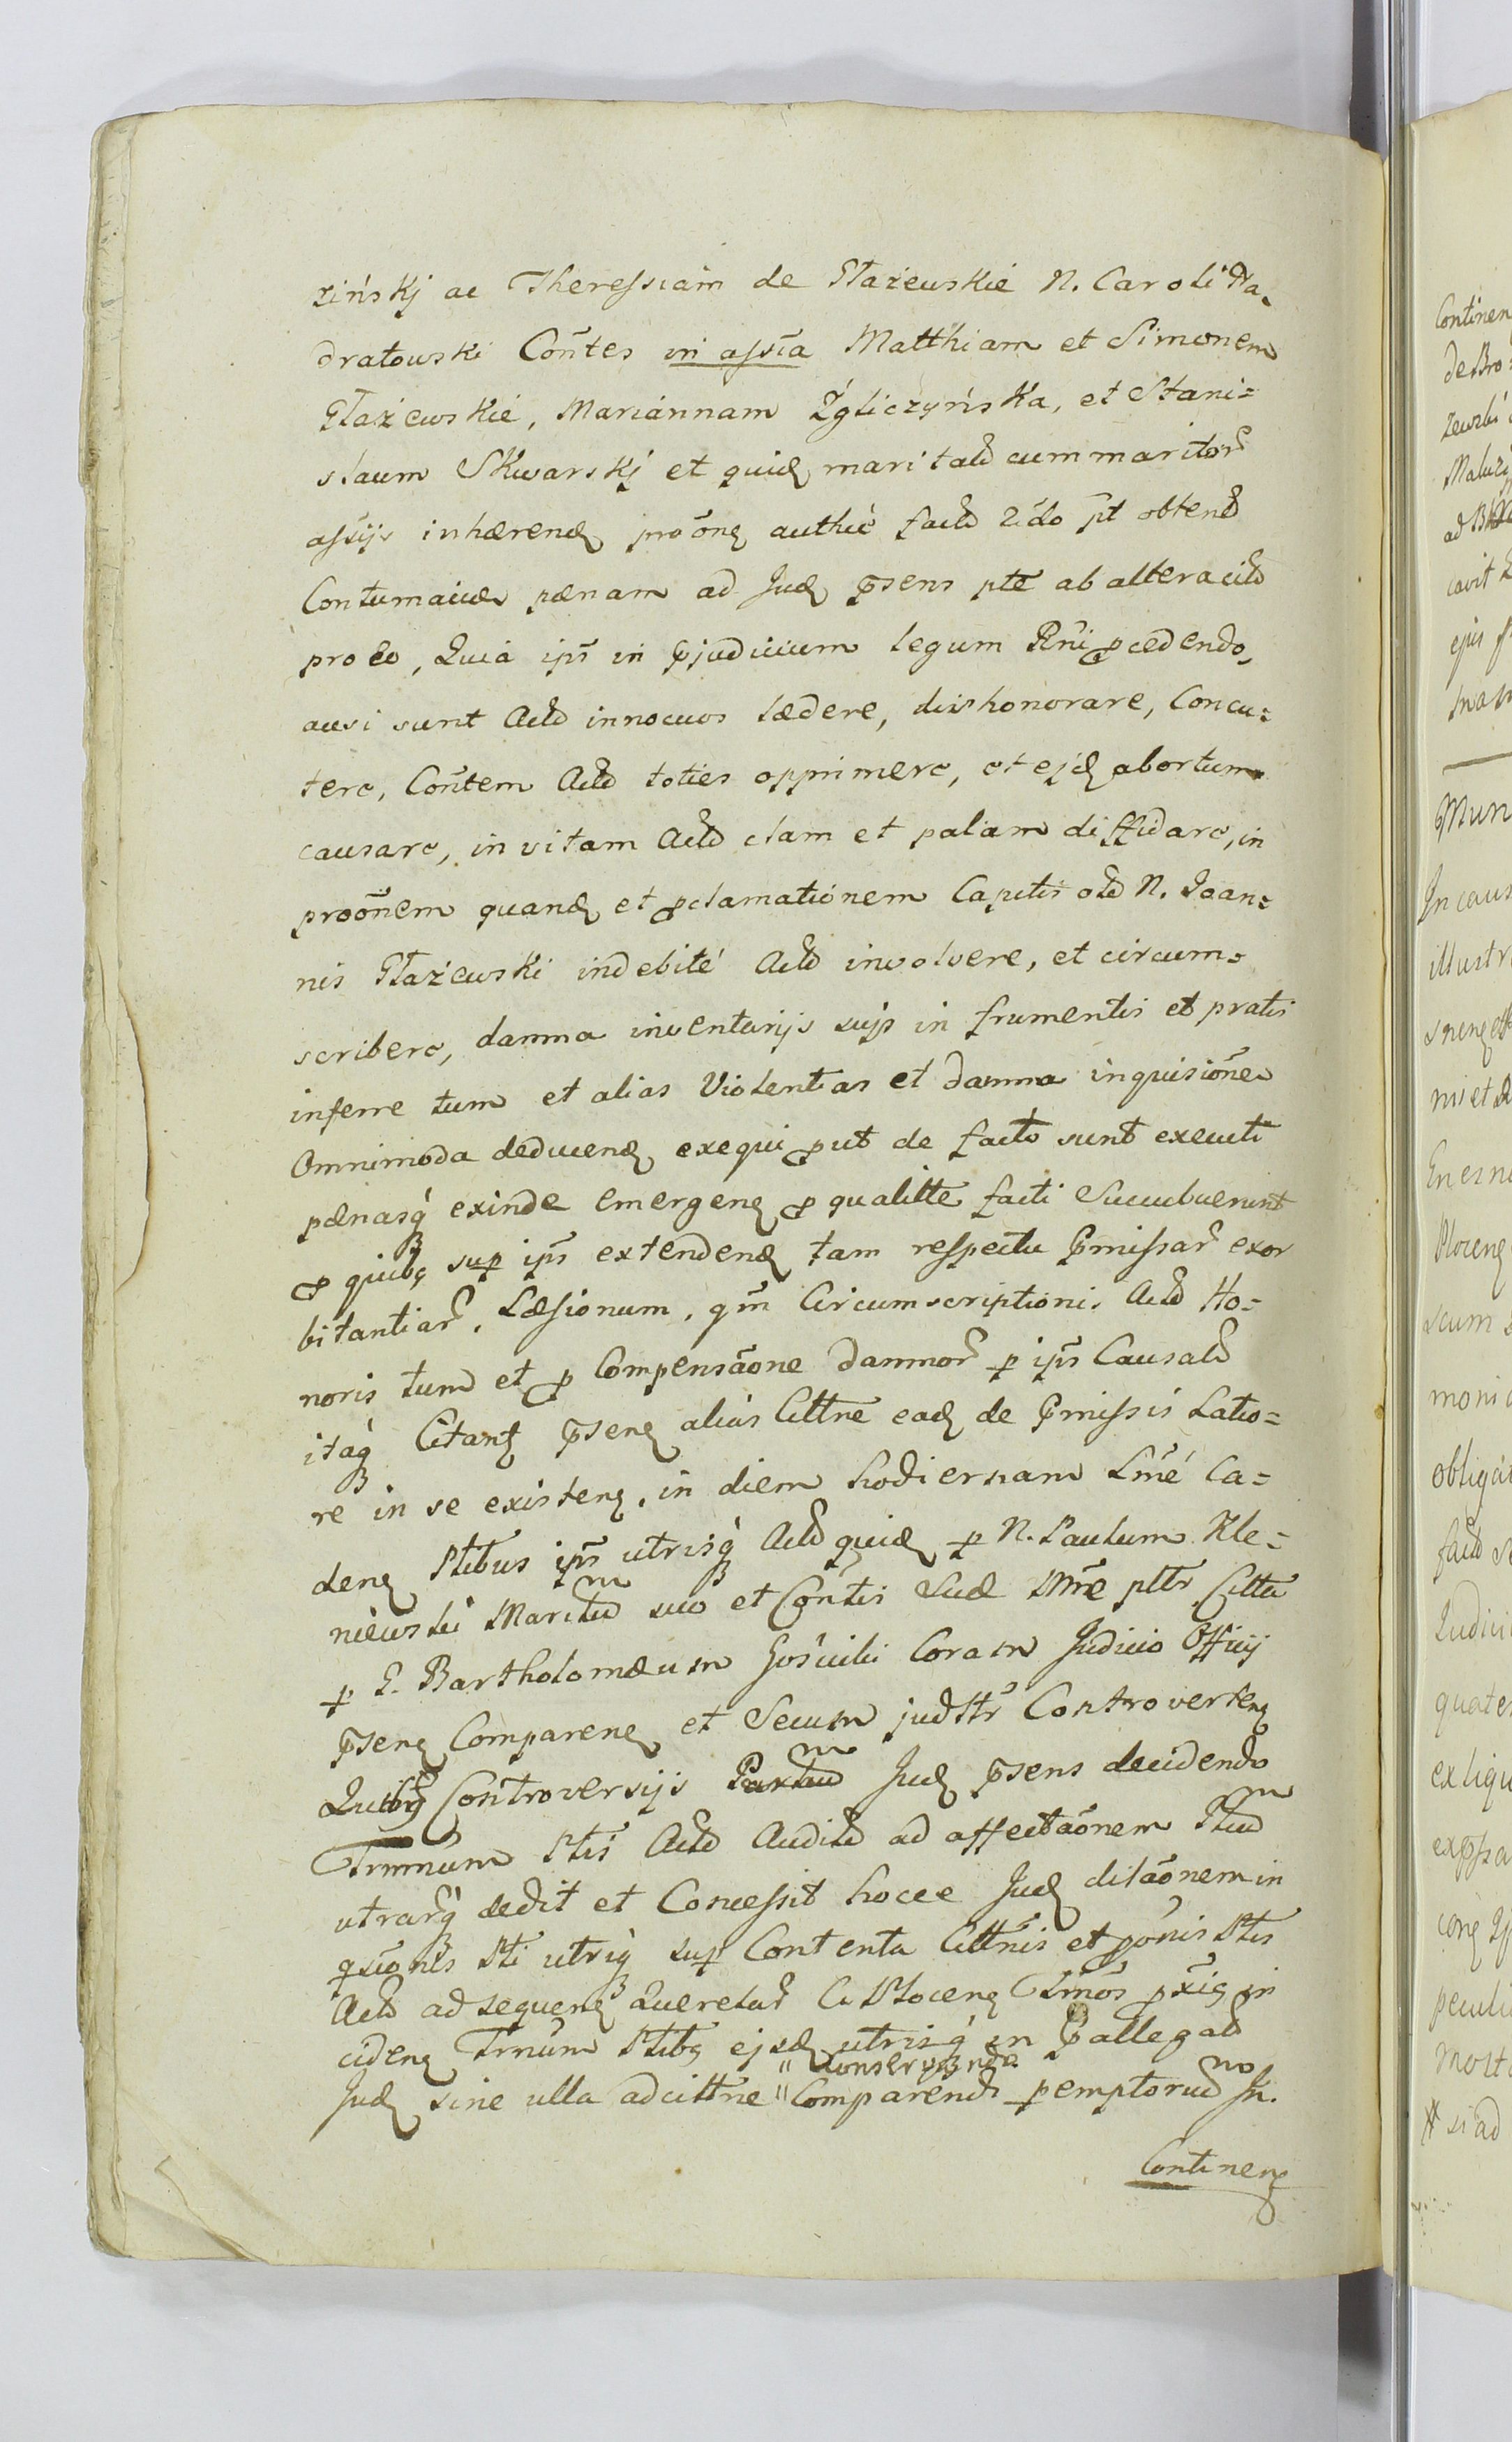 zińskj ac Theressiam de Płażewskie N. Caroli Na-
dratowski Con̄tes in assia Matthiam et Simonem
Płażewskie, Mariannam Zgliczyńska, et Stani=
slaum Skwarskj et quid maritald cum maritor
assijs inhærend pro onē authce factd 2do pt obtend
Contumaciæ pænam ad Jud psens pte ab altera citd
pro eo, Quia ips in pjudicium legum Rni pcedendo,
ausi sunt Actd innocuos lædere, dishonorare, Concu=
tere, Con̄tem Actd toties opprimere, et ejd abortum
causare, in vitam Actd clam et palam diffidare, in
proōnem quand et pclamationem Capitis old N. Joan=
nis Płażewski indebité Actd involvere, et circum=
scribere, damna inventarijs suis in frumentis et pratis
inferre tum et alias Violentias et damna inquisiōne
Omnimoda deducend exequi put de facto sunt executi
pænasq exinde emergen p qualitte facti Succubuerunt
p quibs sup ips extendend tam respectu pmissar exor
bitantiar, Læsionum, qm Circumscriptionis Actd Ho=
noris tum et p Compensāone damnor p ips Causald
itaq Citant psen alias Cittne ead de pmissis Latio=
re in se existen, in diem hodiernam Lme Ca=
den Ptibus ips utrisq Actd quid p N. Paulum Kle=
niewski Maritum suo et Con̄tis Suæ Nne pttr Citta
p G. Bartholomæum Gościcki Coram Judicio Officij
psen Comparen et Secum judttr Controverten
Quibs Controversijs Partium Jud psens decidendo
Trmnum Ptis Actd Auditd ad affectāonem Ptium
utrarq dedit et Concessit hocce Jud dilāonem in
qsiones Pti utriq sup Contenta Cittnis et ponis Ptis
Actd ad sequen Querelar C Plocen Trmos pxis in
ciden Trnum Ptibs ejsd utrisq in pallegatd
conservanda
Jud sine ulla adcittne " Comparendi pemptorium Jn.
Continen
Continen
de Bro
zewski
Maluzy
ad
cavit
ejus
Mun
In caus
illustr
ni et
Plocen
scum
moni
obligat
factd
Judici
quate
ex liqu
pecul
si ad